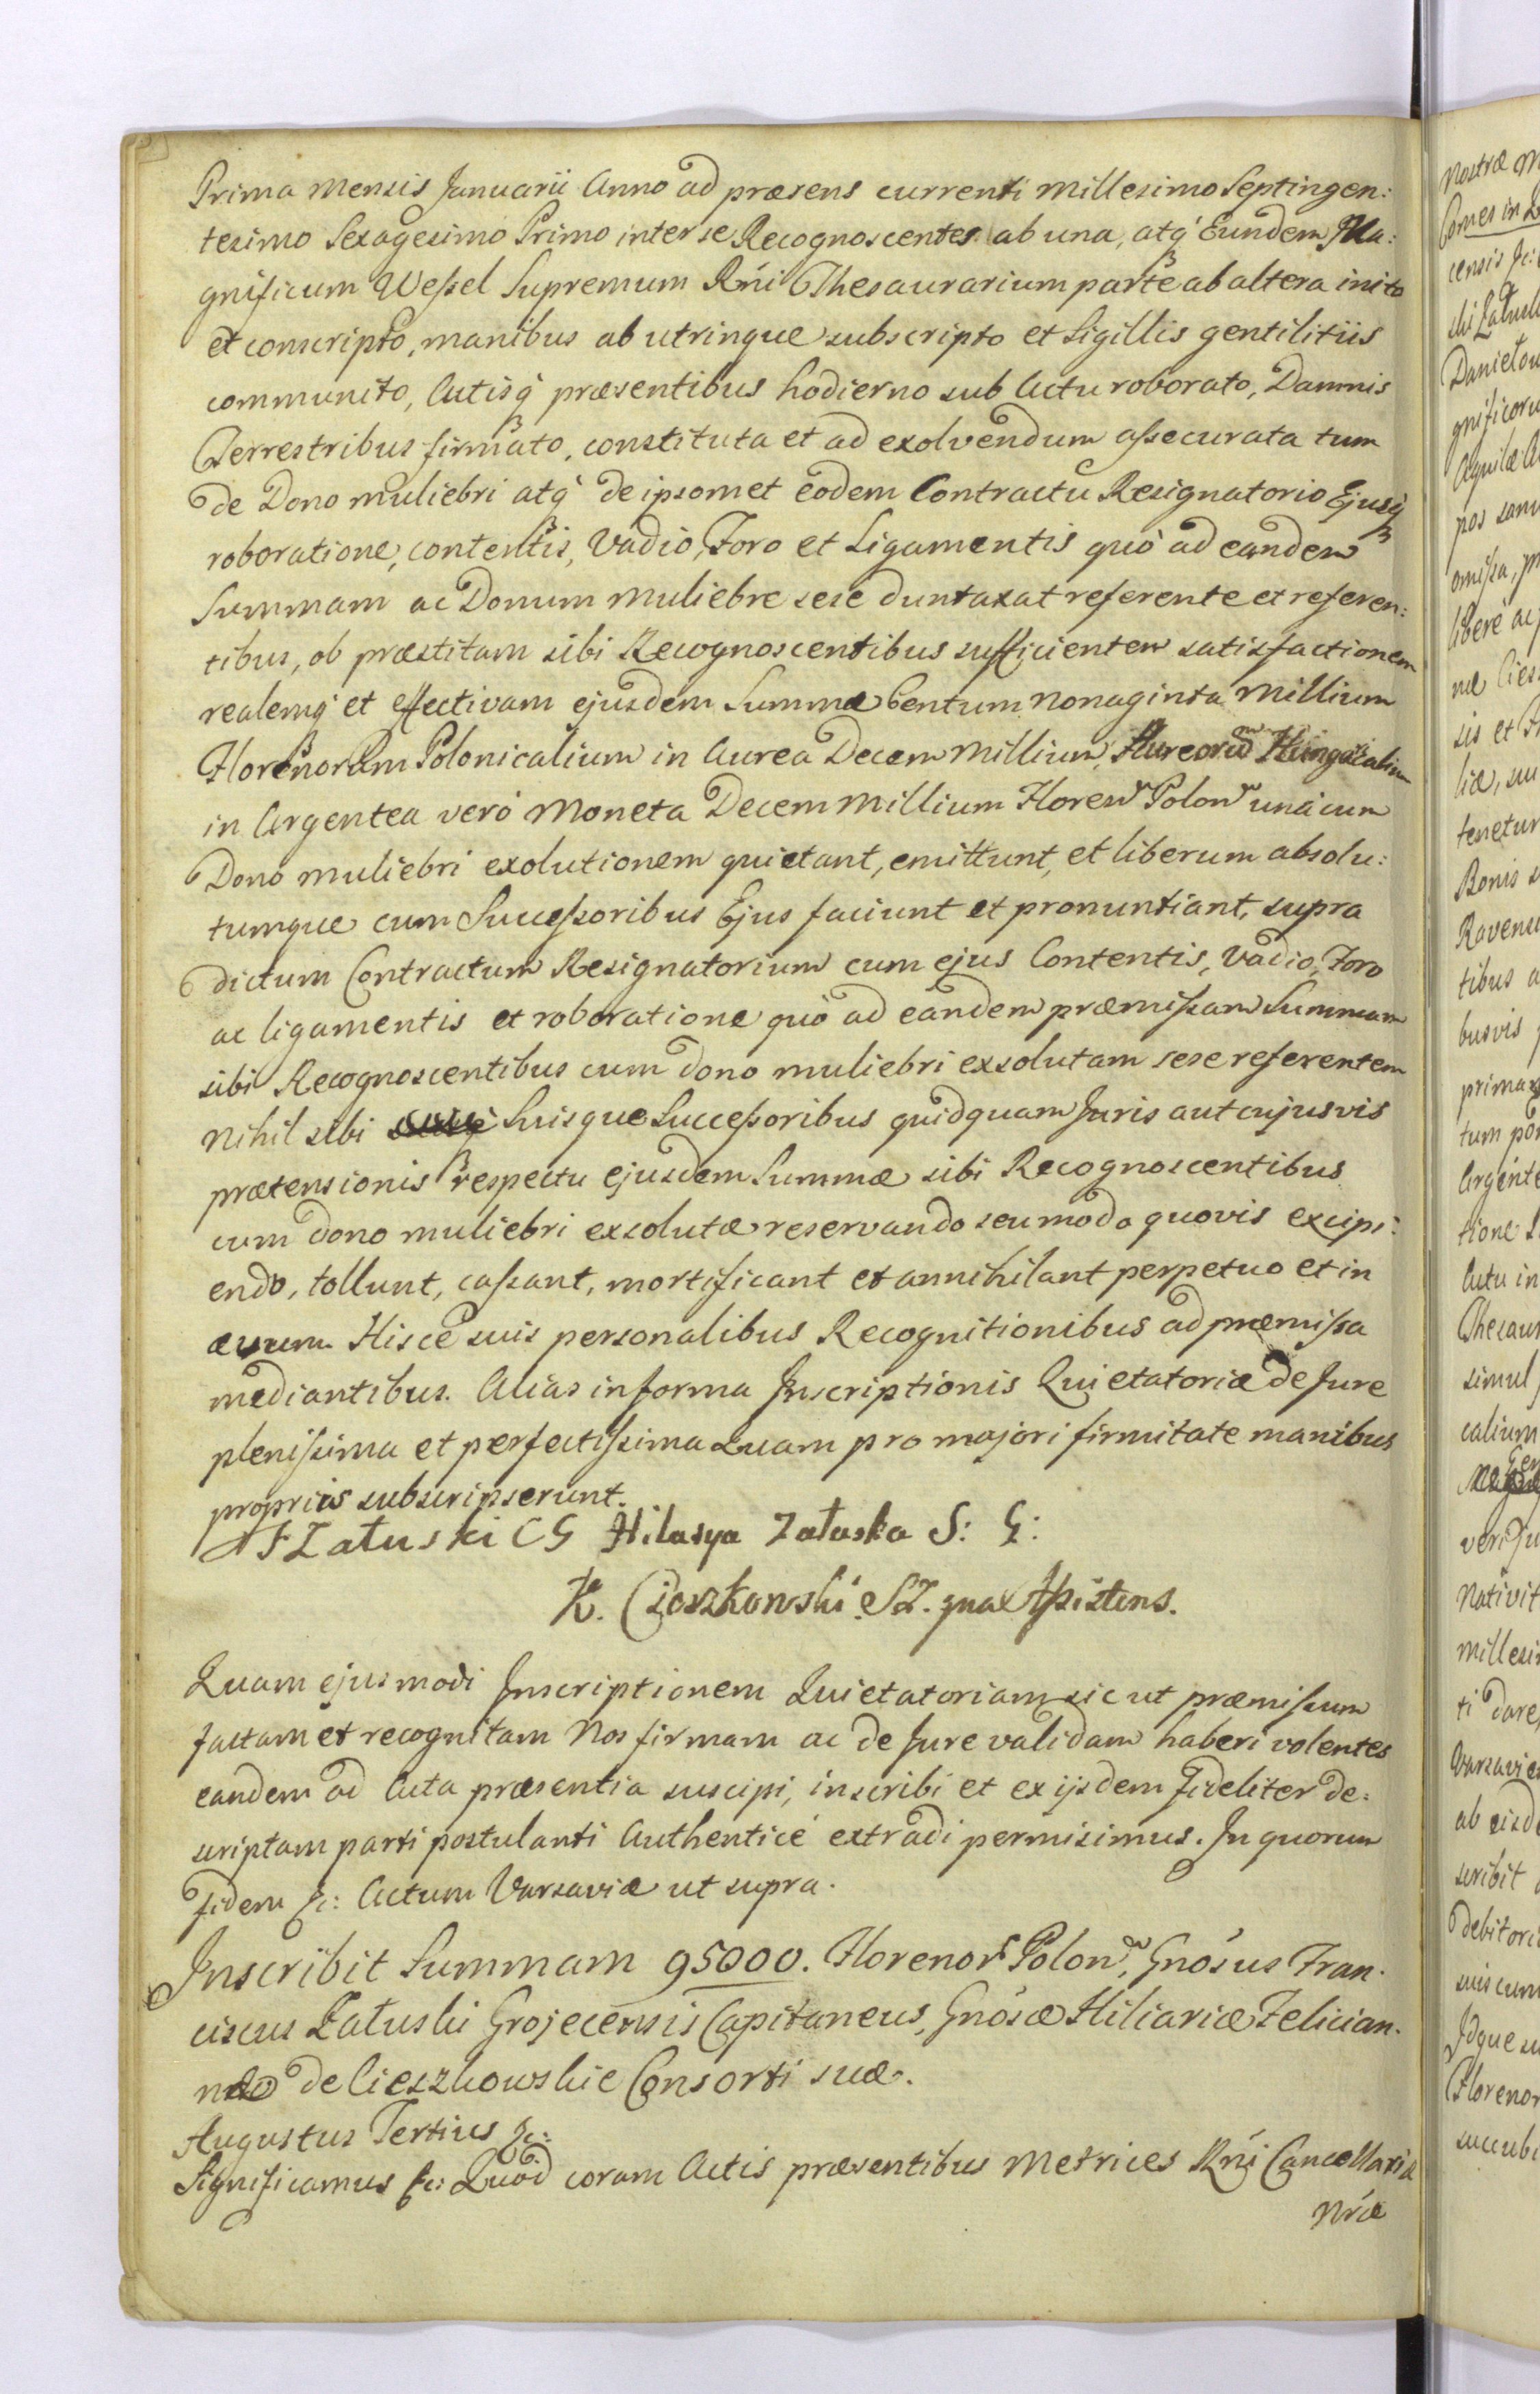 Prima mensis Januarii Anno ad præsens currenti millesimo Septingen:
tesimo Sexagesimo Primo inter se Recognoscentes ab una, atq́ Eundem Ma:
gnificum Weſsel Supremum Rńi Thesaurarium parte ab altera inito
et conscripto, manibus ab utrinque subscripto et Sigillis gentilitiis
communito, Actisq́ præsentibus hodierno sub Actu roborato, Damnis
Terrestribus firmato, constituta et ad exolvendum aſsecurata tum
de Dono muliebri atq́ de ipsomet eodem Contractu Resignatorio Ejusq́
roboratione, contentis, Vadio, Foro et Ligamentis quò ad eandem
Summam ac Donum muliebre sese duntaxat referente et referen:
tibus, ob præstitam sibi Recognoscentibus sufficientem satisfactionem
realemq́ et effectivam ejusdem Summæ Centum Nonaginta Millium
Florenorum Polonicalium in Aurea Decem Millium Aureorum Hungaricalium
in Argentea verò Moneta Decem Millium Floren Polon unà cum
Dono muliebri exolutionem quietant, emittunt, et liberum absolu:
tumque cum Succeſsoribus Ejus faciunt et pronuntiant, supra
dictum Contractum Resignatorium cum ejus Contentis, Vadio, Foro
ac ligamentis et roboratione quò ad eandem præmiſsam Summam
sibi Recognoscentibus cum dono muliebri exsolutam sese referentem
Nihil sibi Suisque Succeſsoribus quidquam Juris aut cujusvis
prætensionis respectu ejusdem Summæ sibi Recognoscentibus
cum dono muliebri exsolutæ reservando seu modo quovis excipi:
endo, tollunt, caſsant, mortificant et annihilant perpetuo et in
ævum. Hisce suis personalibus Recognitionibus ad præmiſsa
mediantibus. Alias in forma Inscriptionis Quietatoriæ de Jure
pleniſsima et perfectiſsima Quam pro majori firmitate manibus
propriis subscripserunt.
F Załuski C G Hilarya Załuska S: G:
K. Cieszkowski S Z. qua Aſsistens.
Quam ejusmodi Inscriptionem Quietatoriam sic ut præmiſsum
factam et recognitam Nos firmam ac de Jure validam haberi volentes
eandem ad Acta præsentia suscipi, inscribi et ex ijsdem fideliter de:
scriptam parti postulanti Authenticè extradi permisimus. In quorum
fidem &c: Actum Varsaviæ ut supra.
Inscribit Summam 95000. Florenor Polon, Gnósus Fran:
ciscus Załuski Grojecensis Capitaneus, Gnósæ Hilariæ Felician:
næ de Cieszkowskie Consorti suæ.
Augustus Tertius &c:
Significamus &c: Quod coram Actis præsentibus Metrices Rńi Cancellariæ
Nŕæ
Nostræ M
Comes in
censis &c:
ski Załusk
Danielow
gnificoru
Aquilæ A
pos sanu
omiſsa, p
libere ac
næ Cies
sis et F
liæ, su
tenetur
Bonis s
Ravens
tibus a
busvis
primar
tum po
Argente
tione S
Actu in
Thesaur
simul
calium
veri Ju
Nativit
Millesi
ti dare
Varsaviæ
ab eisd
scribit
debitori
suis cum
Idque su
Florenor
succubi